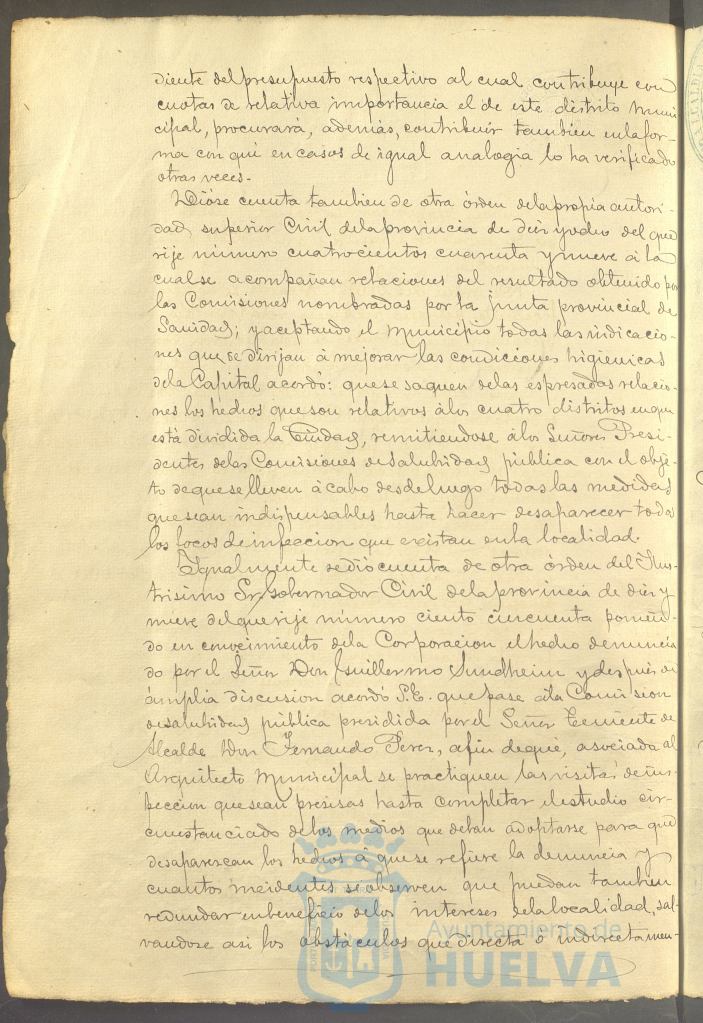 diente del presupuesto respectivo al cual contribuye con
cuotas de relativa importancia el de este distrito muni-
cipal, procurará, además, contribuir tambien en la for-
ma con que en casos de igual analogia lo ha verificado
otras veces.
Dióse cuenta tambien de otra órden de la propia autori-
dad superior Civil de la provincia de diez y ocho del que
rije número cuatrocientos cuarenta y nueve á la
cual se acompañan relaciones del resultado obtenido por
las Comisiones nombradas por la junta provincial de
Sanidad; y aceptando el municipio todas las indicacio-
nes que se dirijan á mejorar las condiciones higienicas
de la Capital acordó: que se saquen de las espresadas relacio-
nes los hechos que son relativos á los cuatro distritos en que
está dividida la Ciudad, remitiendose á los Señores Presi-
dentes de las Comisiones de salubridad pública con el obje-
to de que se lleven á cabo desde luego todas las medidas
que sean indispensables hasta hacer desaparecer todos
los focos de infeccion que existan en la localidad.
Igualmente se dió cuenta de otra órden del Ilus-
trisimo Sr. Gobernador Civil de la provincia de diez y
nueve del que rije número ciento cincuenta ponien-
do en conocimiento de la Corporacion el hecho denuncia-
do por el Señor Don Guillermo Sundheim y despues de
ámplia discusion acordó S.E. que pase á la Comision
de salubridad pública presidida por el Señor Teniente de
Alcalde Don Fernando Perez, a fin de que, asociada al
Arquitecto Municipal se practiquen las visitas de ins-
peccion que sean presisas hasta completar el estudio cir-
cunstanciado de los medios que deban adoptarse para que
desaparezcan los hechos á que se refiere la denuncia y
cuantos incidentes se observen que puedan tambien
redundar en beneficio de los intereses de la localidad, sal-
vandose asi los obstáculos que directa é indirectamen-
Ayuntamiento de
HUELVA